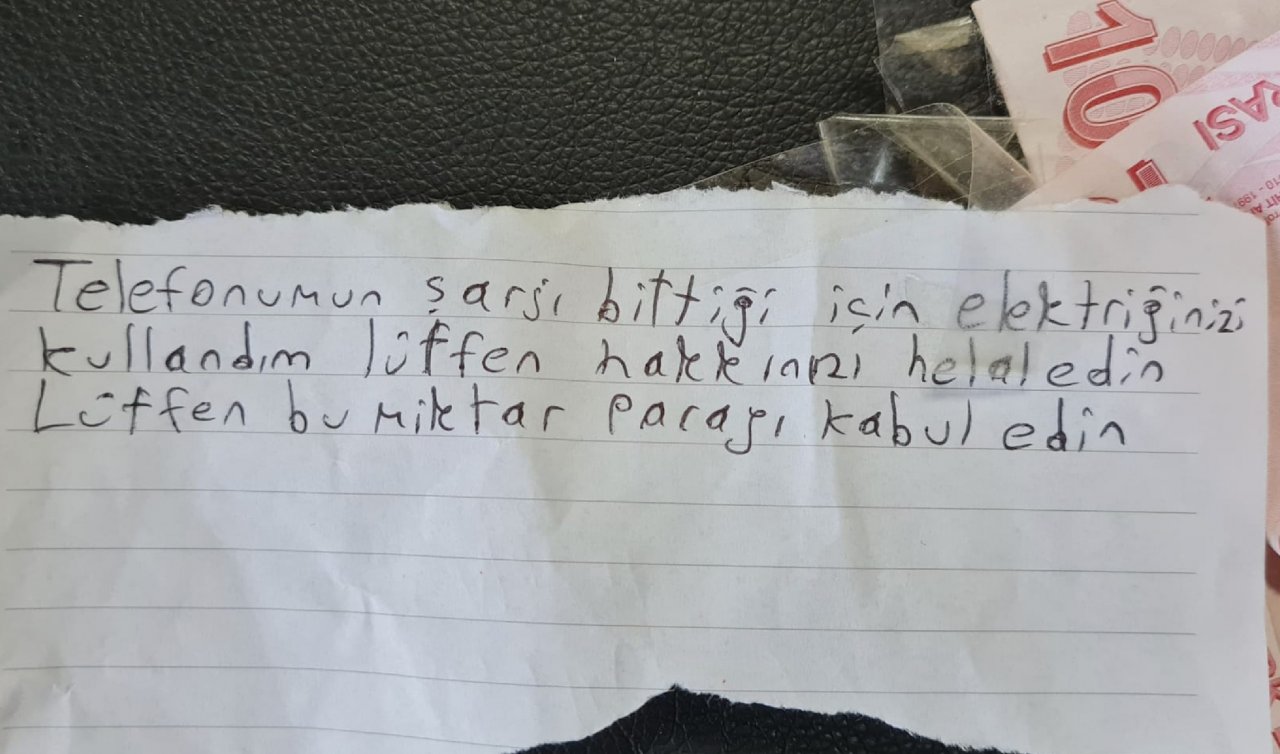 10
RASI
Telefonumun şarjı bittiği için elektriğinizi
kullandım lütfen hakkınızı helal edin
Lütfen bu miktar parayı kabul edin